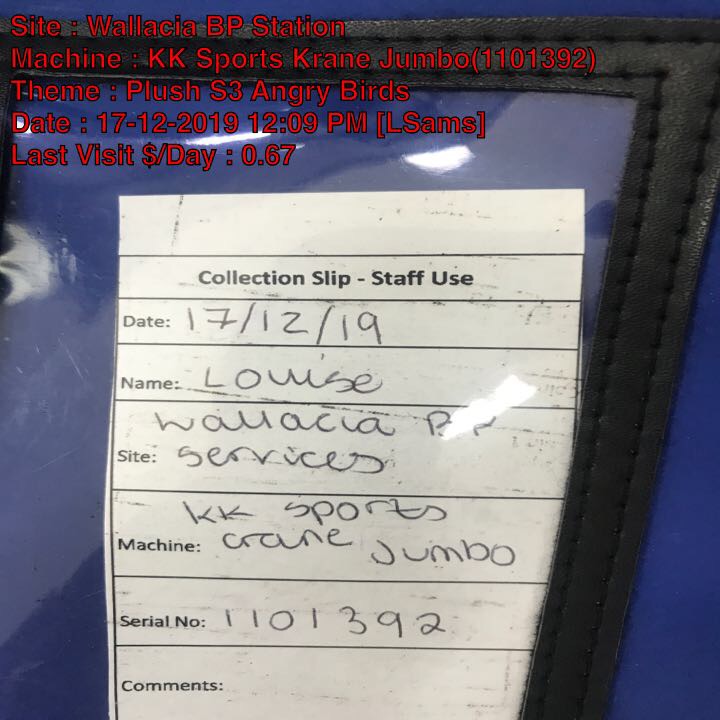 Site : Wallacia BP Station
Machine : KK Sports Krane Jumbo(1101392)
Theme : Plush S3 Angry Birds
Date : 17-12-2019 12:09 PM [LSams]
Last Visit $/Day : 0.67
Collection Slip - Staff Use
Date: 17/12/19
Name: Louise
Wallacia BP
Site: services
KK sports
Machine: crane Jumbo
Serial No: 1101392
Comments: